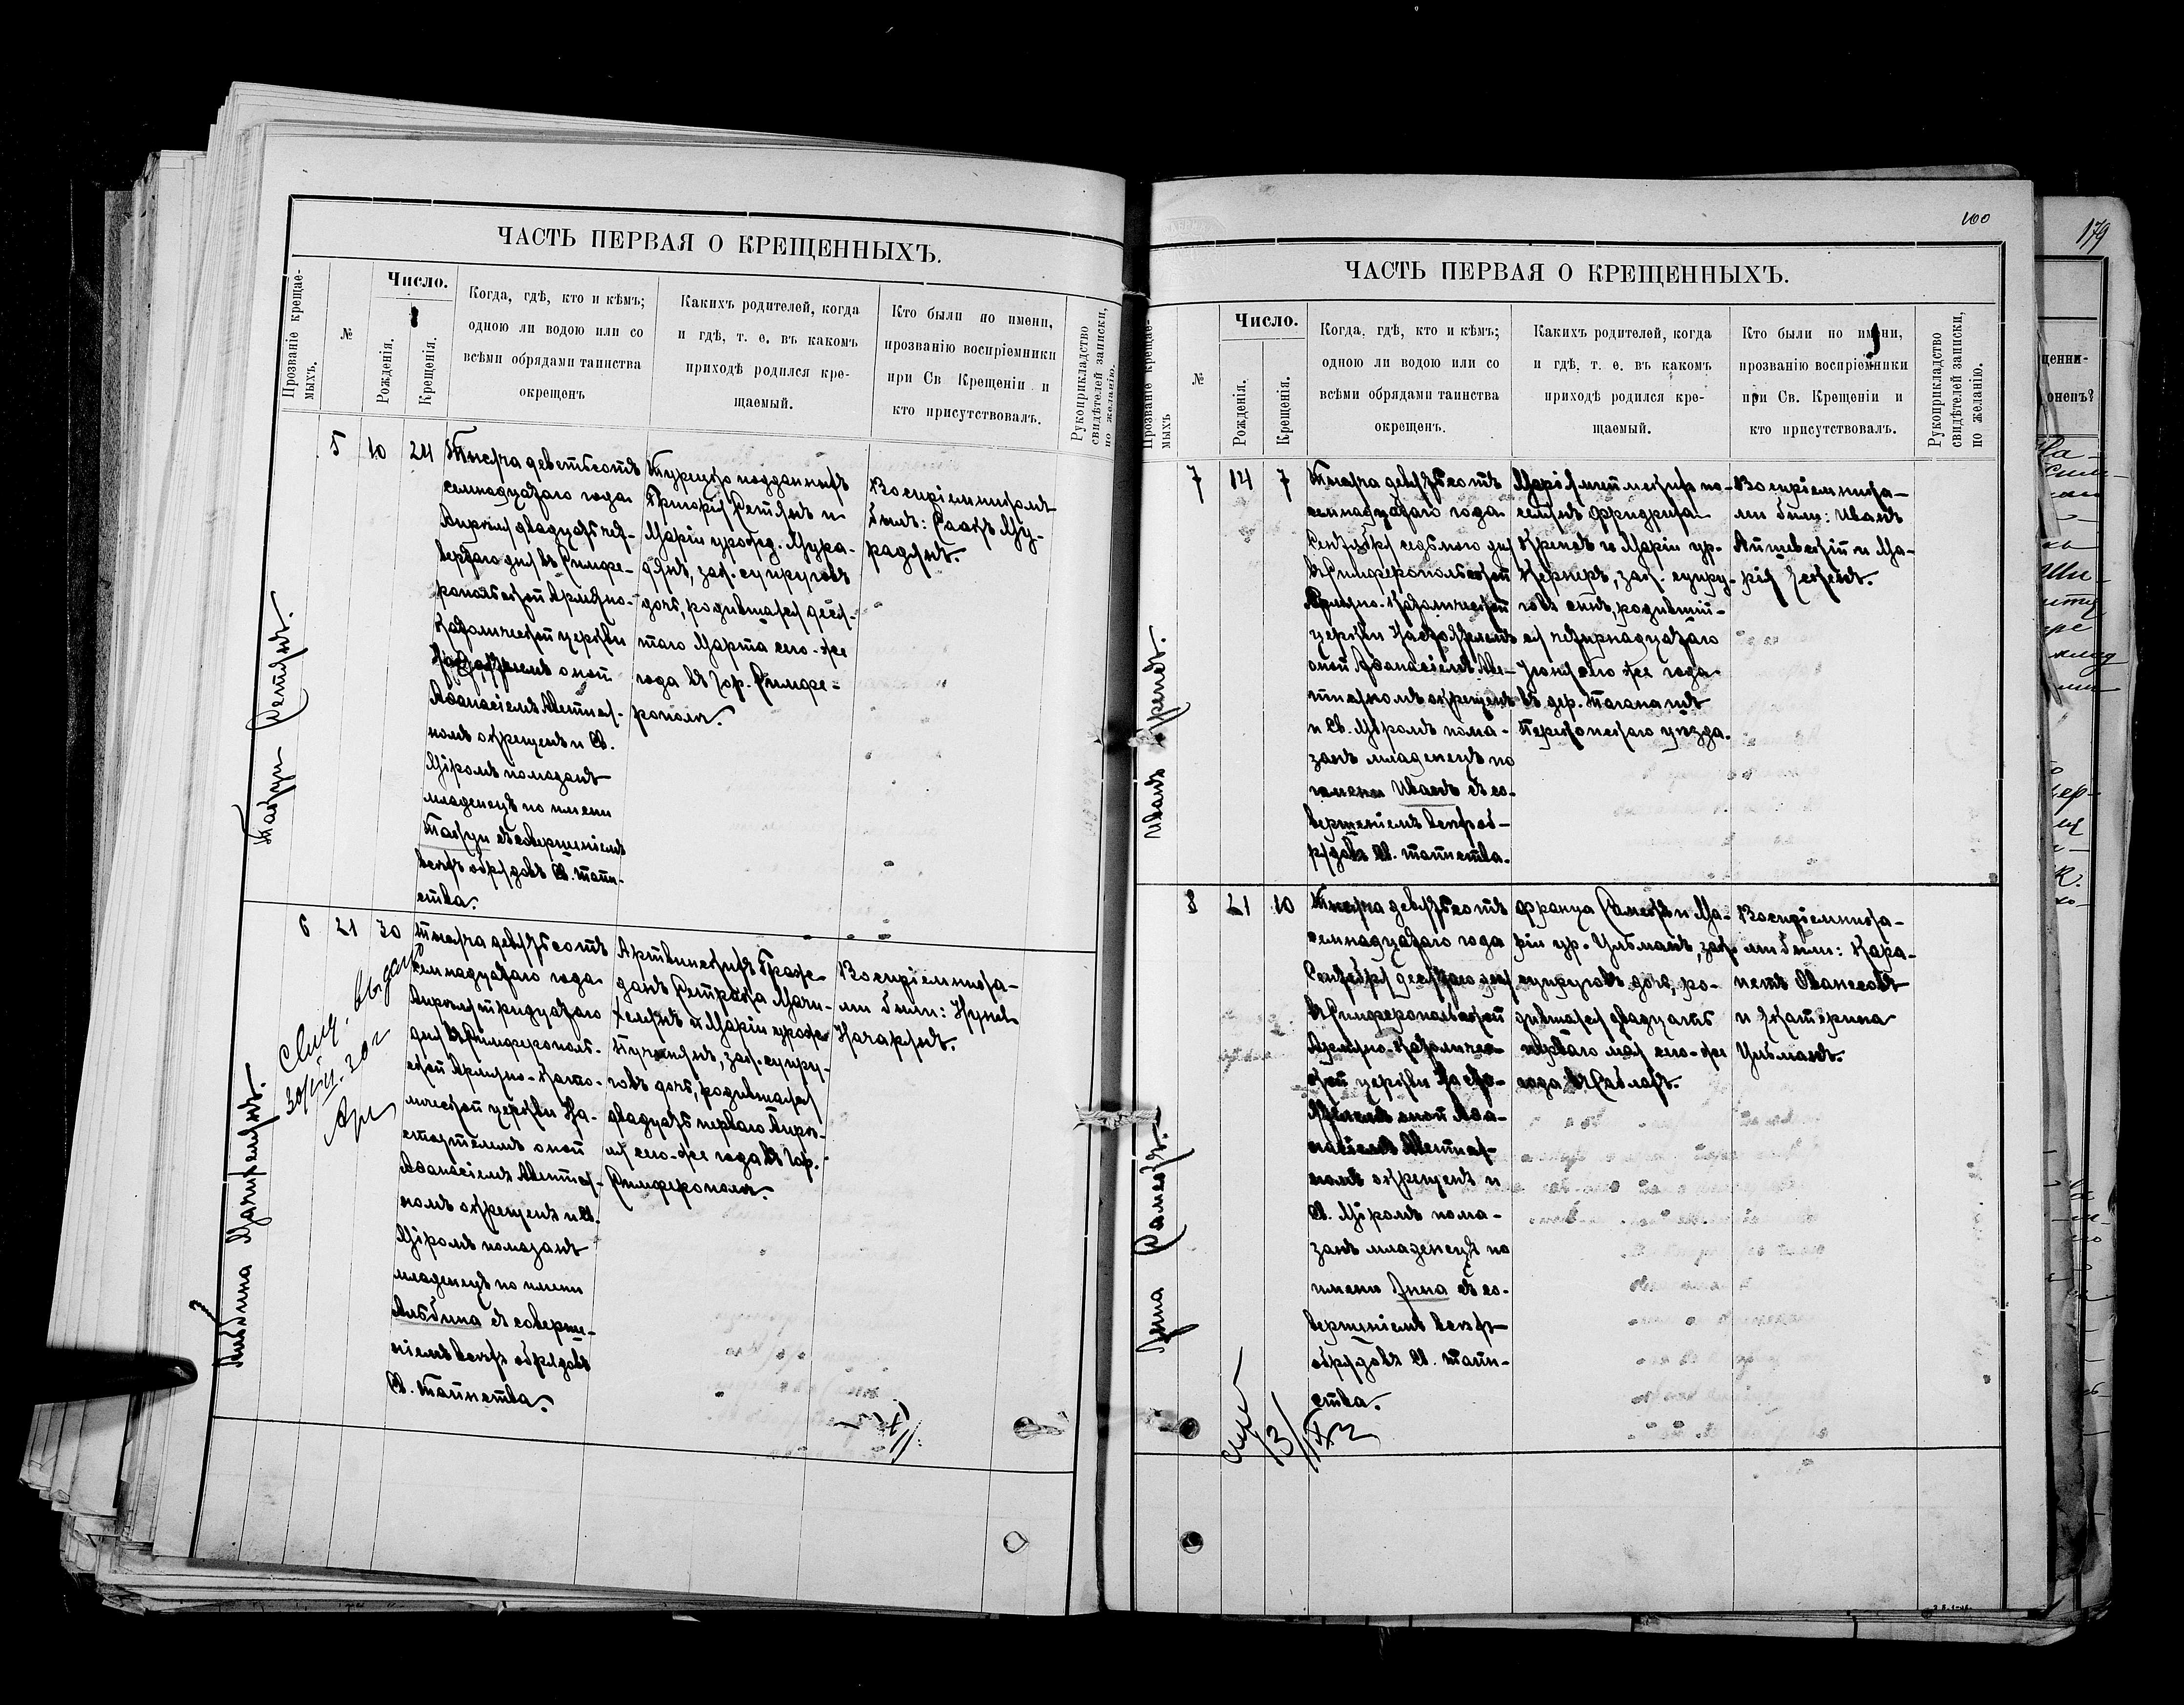 ЧАСТЬ ПЕРВАЯ О КРЕЩЕННЫХЪ.
Прозваніе крещае-
мыхъ.
№
Число.
Рожденія.
Крещенія.
Когда, гдѣ, кто и кѣмъ;
одною ли водою или со
всѣми обрядами таинства
окрещенъ
Каких­ъ родителей, когда
и гдѣ, т. е. въ какомъ
приходѣ родился кре-
щаемый.
Кто были по имени,
прозванію воспріемники
при Св Крещеніи и
кто присутствовалъ.
Рукоприкладство
свидѣтелей записки,
по желанію.
5
10
24
Тысяча девятьсотъ
семнадцатаго года
Апрѣля двадцать чет-
вертаго дня въ Симфе-
ропольской Армяно-
Католической церкви
Настоятелемъ оной
Афанасіемъ
окрещенъ и Св.
Мѵромъ помазанъ
младенецъ по имени
съ совершеніемъ
всѣхъ обрядовъ Св. таин-
ства.
Турецко подданныхъ
Григорія и
Маріи урожд. Мура-
дянъ, зак. супруговъ
дочь, родившаяся деся-
таго Марта сего-же
года въ гор. Симфе-
рополѣ.
Воспріемникомъ
былъ: Саакъ Му-
радянъ.
6
21
30
Альбина
Тысяча девятьсотъ
семнадцатаго года
Апрѣля тридцатаго
дня въ Симферополь-
ской Армяно-Като-
лической церкви На-
стоятелемъ оной
Афанасіемъ
окрещенъ и Св.
Мѵромъ помазанъ
младенецъ по имени
Альбина съ соверше-
ніемъ всѣхъ обрядовъ
Св. Таинства.
Артвинскихъ граж-
данъ
и Маріи урож.
зак. супру-
говъ дочь, родившаяся
двадцать перваго Апрѣ-
ля сего-же года въ гор.
Симферополѣ.
Воспріемника-
ми были:
100
ЧАСТЬ ПЕРВАЯ О КРЕЩЕННЫХЪ.
Прозваніе крещае-
мыхъ
№
Число.
Рожденія.
Крещенія.
Когда, гдѣ, кто и кѣмъ;
одною ли водою или со
всѣми обрядами таинства
окрещенъ.
Какихъ родителей, когда
и гдѣ, т. е. въ какомъ
приходѣ родился кре-
щаемый.
Кто были по имени,
прозванію воспріемники
при Св. Крещеніи и
кто присутствовалъ.
Рукоприкладство
свидѣтелей записки,
по желанію.
Иванъ
7
14
7
Тысяча девятьсотъ
семнадцатаго года
Сентября седьмого дня
въ Симферопольской
Армяно-Католической
церкви Настоятелемъ
оной Афанасіемъ
окрещенъ
и Св. Мѵромъ пома-
занъ младенецъ по
имени Иванъ съ со-
вершеніемъ всѣхъ об-
рядовъ Св. таинства.
по-
селянъ Фридриха
и Маріи ур.
Кернеръ, зак. супру-
говъ сынъ, родившій-
ся четырнадцатаго
сего же года
въ дер.
Перекопскаго уѣзда.
Воспріемника-
ми были: Иванъ
и Ма-
рія
Анна
8
21
10
Тысяча девятьсотъ
семнадцатаго года
Сентября десятаго дня
въ Симферопольской
Армяно-Католичес-
кой церкви Насто-
ятелемъ оной Афа-
насіемъ
окрещенъ и
Св. Мѵромъ пома-
занъ младенецъ по
имени Анна съ со-
вершеніемъ всѣхъ
обрядовъ Св. таин-
ства.
Франца и Ма-
ріи ур. Ульманъ, зак.
супруговъ дочь, ро-
дившаяся двадцать
перваго мая сего-же
года въ
Воспріемника-
ми были: Кара-
петъ Ованесовъ
и Екатерина
Ульманъ.
179